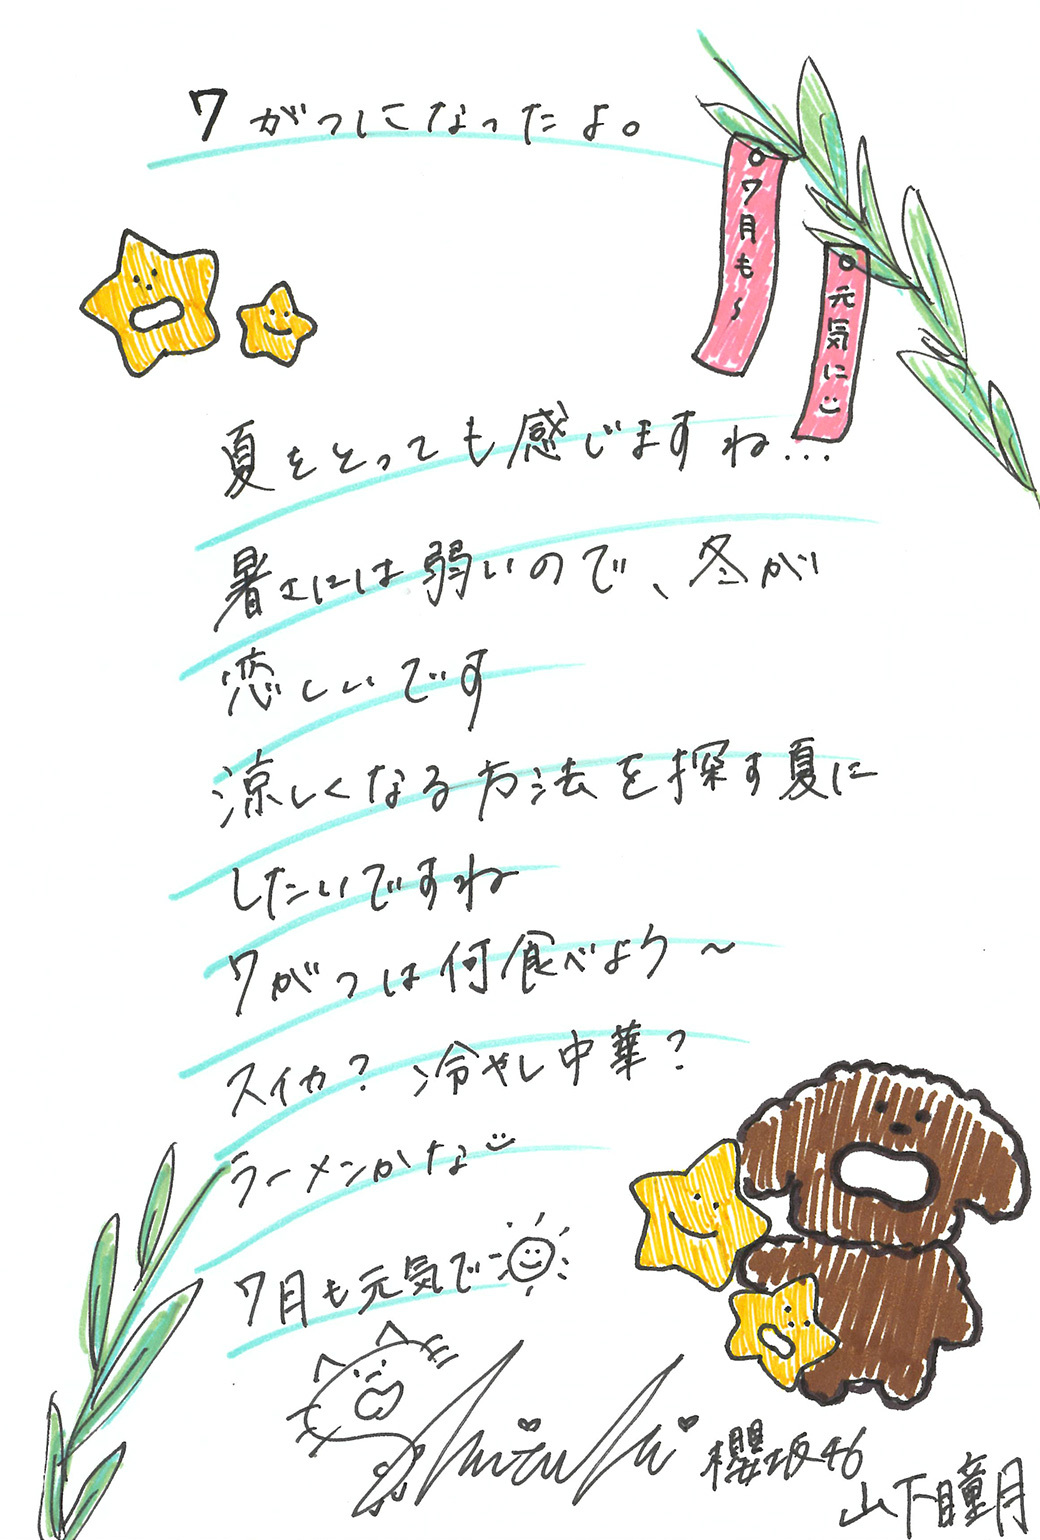 7がつになったよ。
7月も〜
元気に
夏をとっても感じますね...
暑さには弱いので、冬が
恋しいです
涼しくなる方法を探す夏に
したいですね
7がつは何食べよう〜
スイカ?冷やし中華?
ラーメンかな
7月も元気で
Shizuki
櫻坂46
山下瞳月